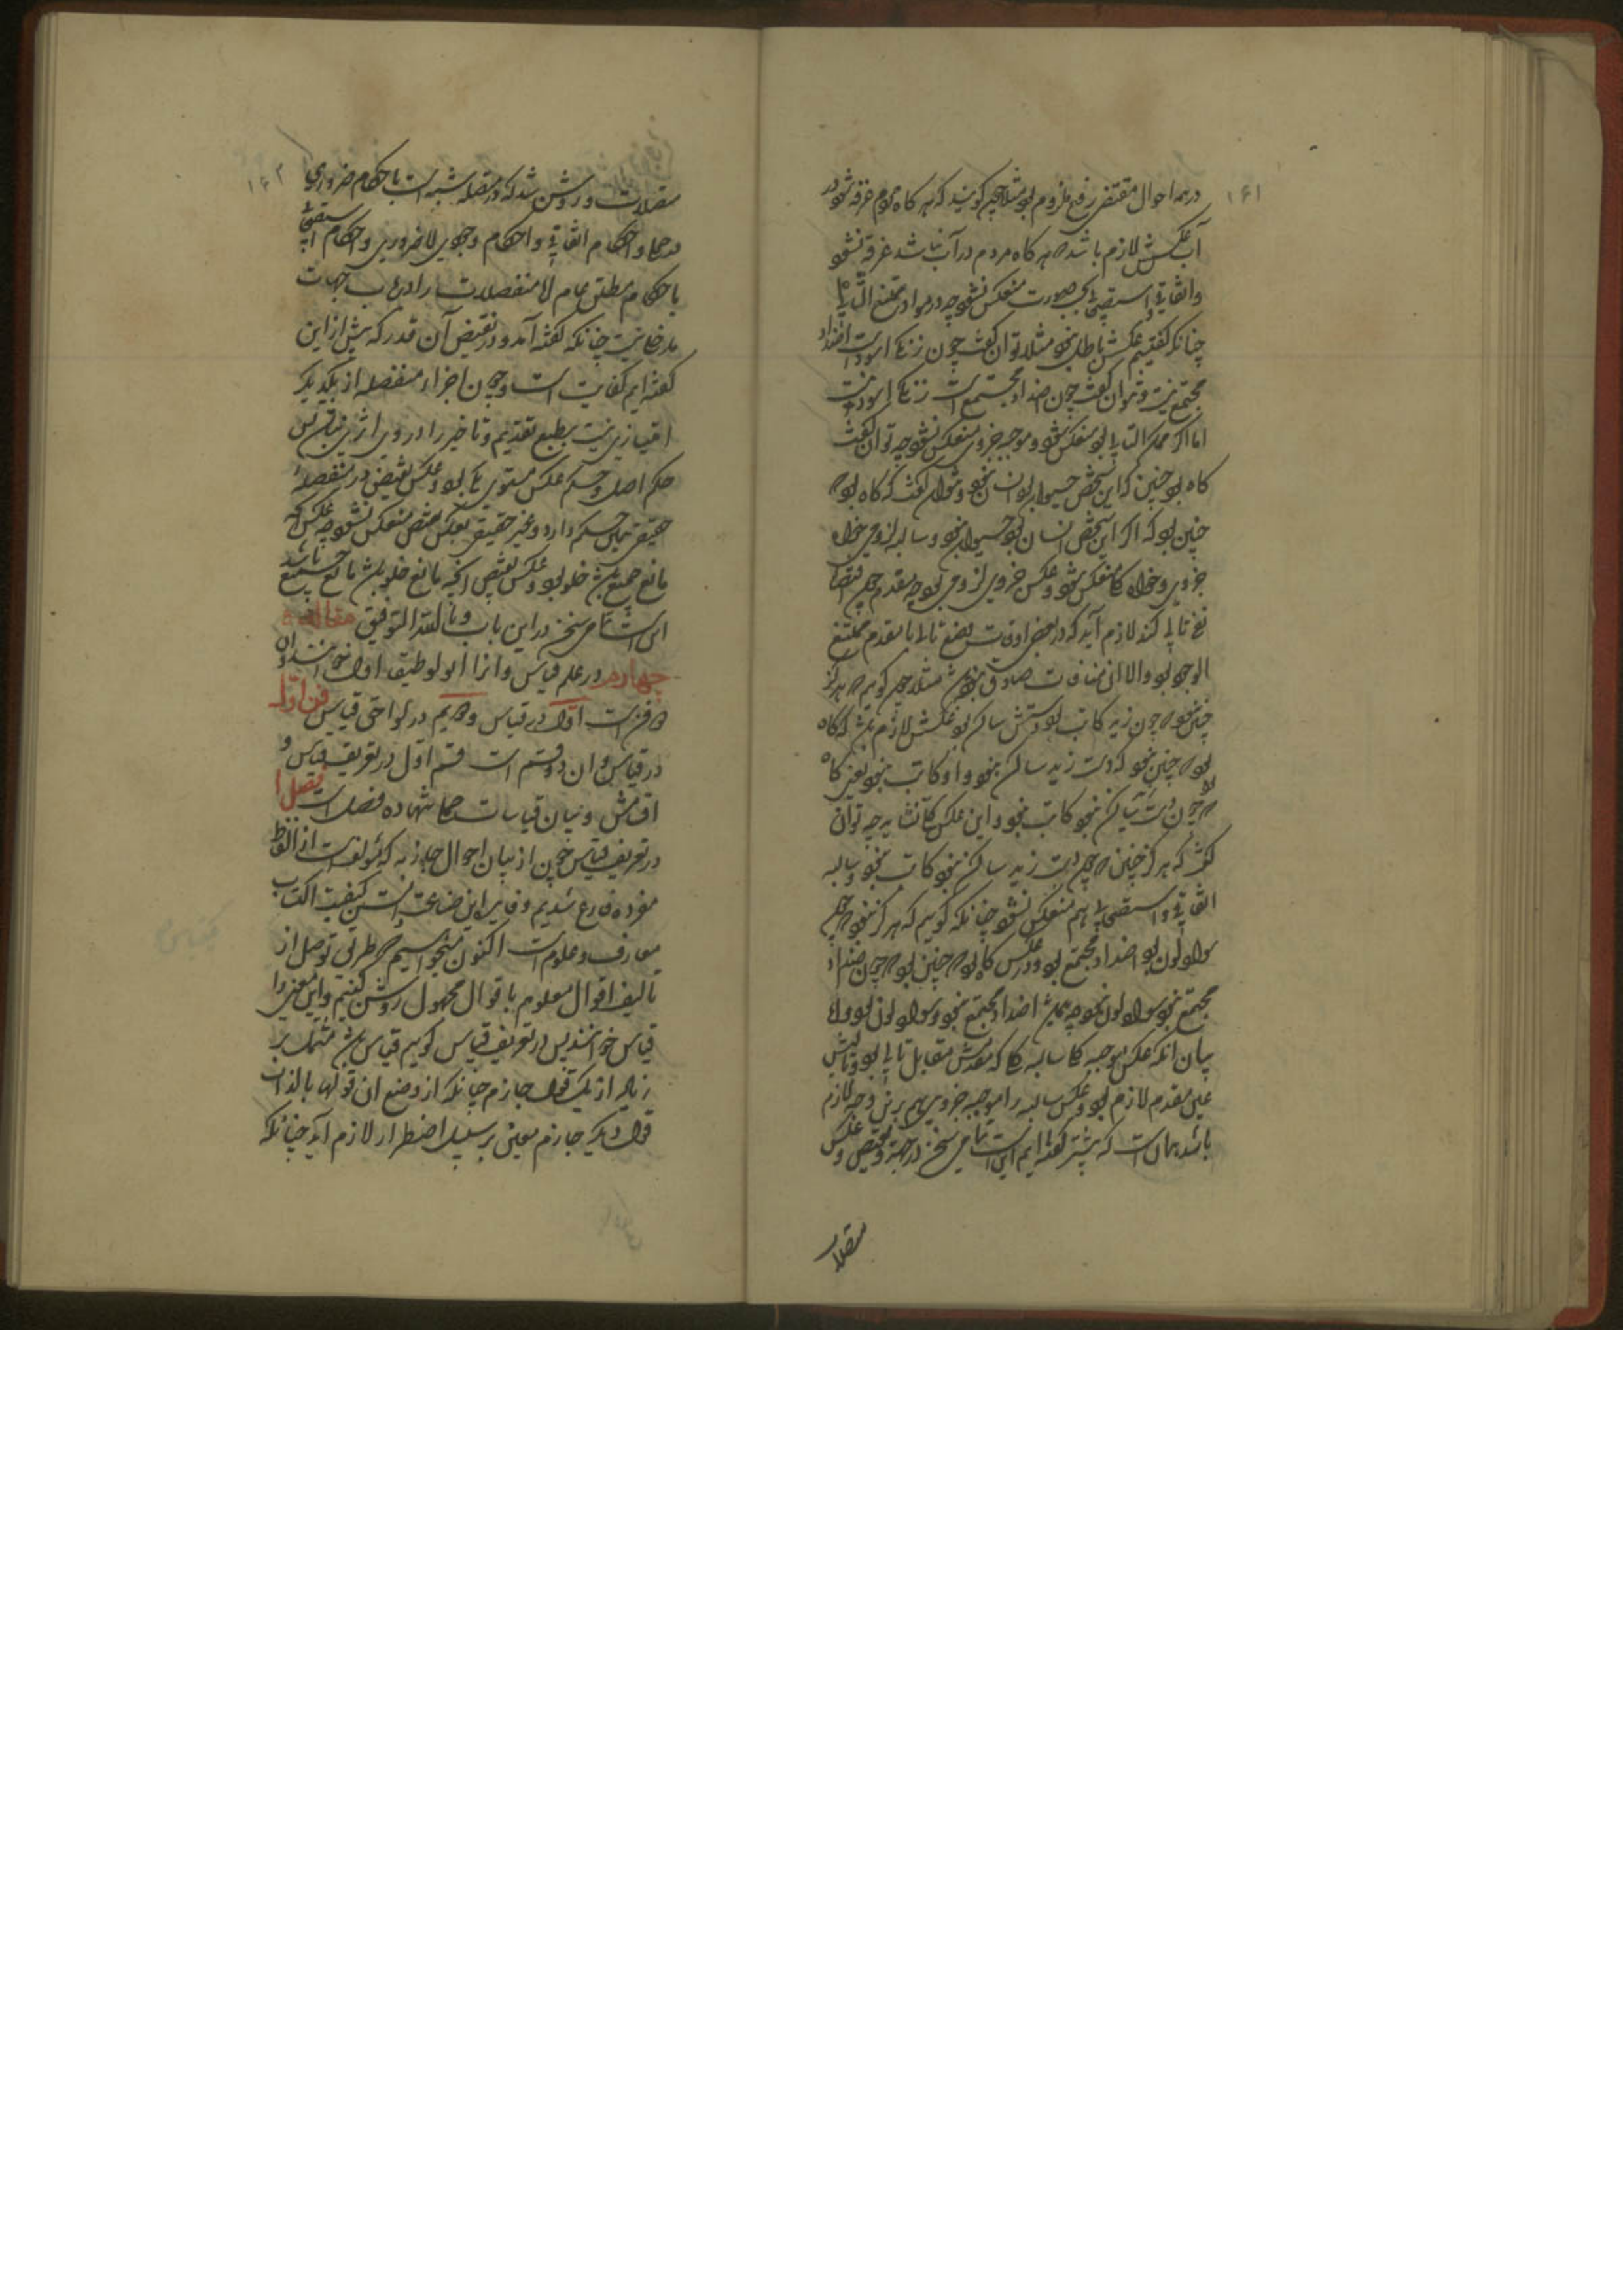 ۱۶۱
در همه احوال مقتضی رفع ملزوم بود مثلا چون گویند که هر گاه مردم غرقه شود در
آب عکسش لازم باشد که هر گاه مردم در آب نباشد غرقه نشود
و اتفاقی و استصحابی بحسب صورت منعکس نشود چه در مواد ممتنع التالی
چنانکه گفتیم عکسش باطل بود مثلا توان گفت چون زنگی اسود است اضداد
مجتمع نیست و نتوان گفت چون اضداد مجتمع است زنگی اسود نیست
اما اگر ممکن التالی بود منعکس شود و موجبه جزوی منعکس نشود چه توان گفت
گاه بود چنین که این شخص حیوان بود انسان نبود و نتوان گفت که گاه بود که
چنین بود که اگر این شخص انسان بود حیوان نبود و سالبه لزومی خواه
جزوی و خواه کلی منعکس شود و عکس جزوی لزومی بود چه مقدم چون اقتضاء
رفع تالی کند لازم آید که در بعضی اوقات وضع تالی با مقدم ممتنع
الوجود بود و الا آن منافات صادق نبوده باشد مثلا چون گویم که هرگز
چنین نبود که چون زید کاتب بود دستش ساکن بود عکسش لازم باشد که گاه
بود که چنین نبود که دست زید ساکن نبود و او کاتب نبود یعنی گاه
بود که چون دستش ساکن نبود کاتب نبود و این عکس کلی نشاید چه توان
گفت که هرگز چنین که چون دست زید ساکن نبود کاتب نبود و سالبه
اتفاقی و استصحابی هم منعکس نشود چنانکه گوییم که هرگز نبود که چون
سواد لون بود اضداد مجتمع بود و در عکس گاه بود که چنین بود که چون اضداد
مجتمع نبود سواد لون نبود چه همیشه اضداد مجتمع نبود و سواد لون بود و اما
بیان آنکه عکس موجبه کلی سالبه کلی که مقدمش مقابل تالی بود و تالیش
عین مقدم لازم بود و عکس سالبه را موجبه جزوی هم برین وجه لازم
باشد همانست که پیشتر گفته ایم این است تمامی سخن در جهة و نقیض و عکس
متصلات
۱۶۲
متصلات و روشن شد که در متصله شبیه است باحکام ضروری
در حملی و احکام اتفاقی و احکام وجودی لاضروری و احکام استصحابی
باحکام مطلق عام اما منفصلات را در باب جهات
مدخلی نیست چنانکه گفته آمد و در نقیض آن قدر که پیش از این
گفته ایم کفایت است و چون اجزاء منفصله از یکدیگر
امتیازی نیست بطبع تقدیم و تاخیر را در وی اثری نباشد پس
حکم اصل و حکم عکس مستوی یکی بود و عکس نقیض در منفصله
حقیقی همین حکم دارد و غیر حقیقی بعکس نقیض منعکس نشود چه عکس آنکه
مانع جمع باشد خلو بود و عکس نقیض آنچه مانع خلو باشد مانع جمع باشد
این است تمامی سخن در این باب و بالله التوفیق مقاله
چهارم در علم قیاس و آنرا انولوطیقا اول خوانند و آن
دو فن است اول در قیاس و دویم در لواحق قیاس فن اول
در قیاس و آن دو قسم است قسم اول در تعریف قیاس و
اقسامش و بیان قیاسات حملی ده فصل است فصل ۱
در تعریف قیاس چون از بیان احوال جازمه که مؤلف است از الفاظ
مفرده فارغ شدیم و فایده این صناعت دانستن کیفیت اکتساب
معارف و علوم است اکنون میخواهیم که طریق توصل از
تالیف اقوال معلوم باقوال مجهول روشن کنیم و این معنی را
قیاس خوانند پس در تعریف قیاس گوییم قیاس باشد مشتمل بر
زیاده از یک قول جازم چنانکه از وضع آن قولها بالذات
قول دیگر جازم معین بر سبیل اضطرار لازم آید چنانکه